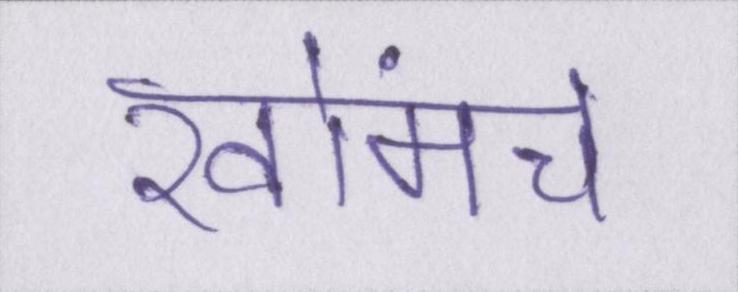 खोमंच